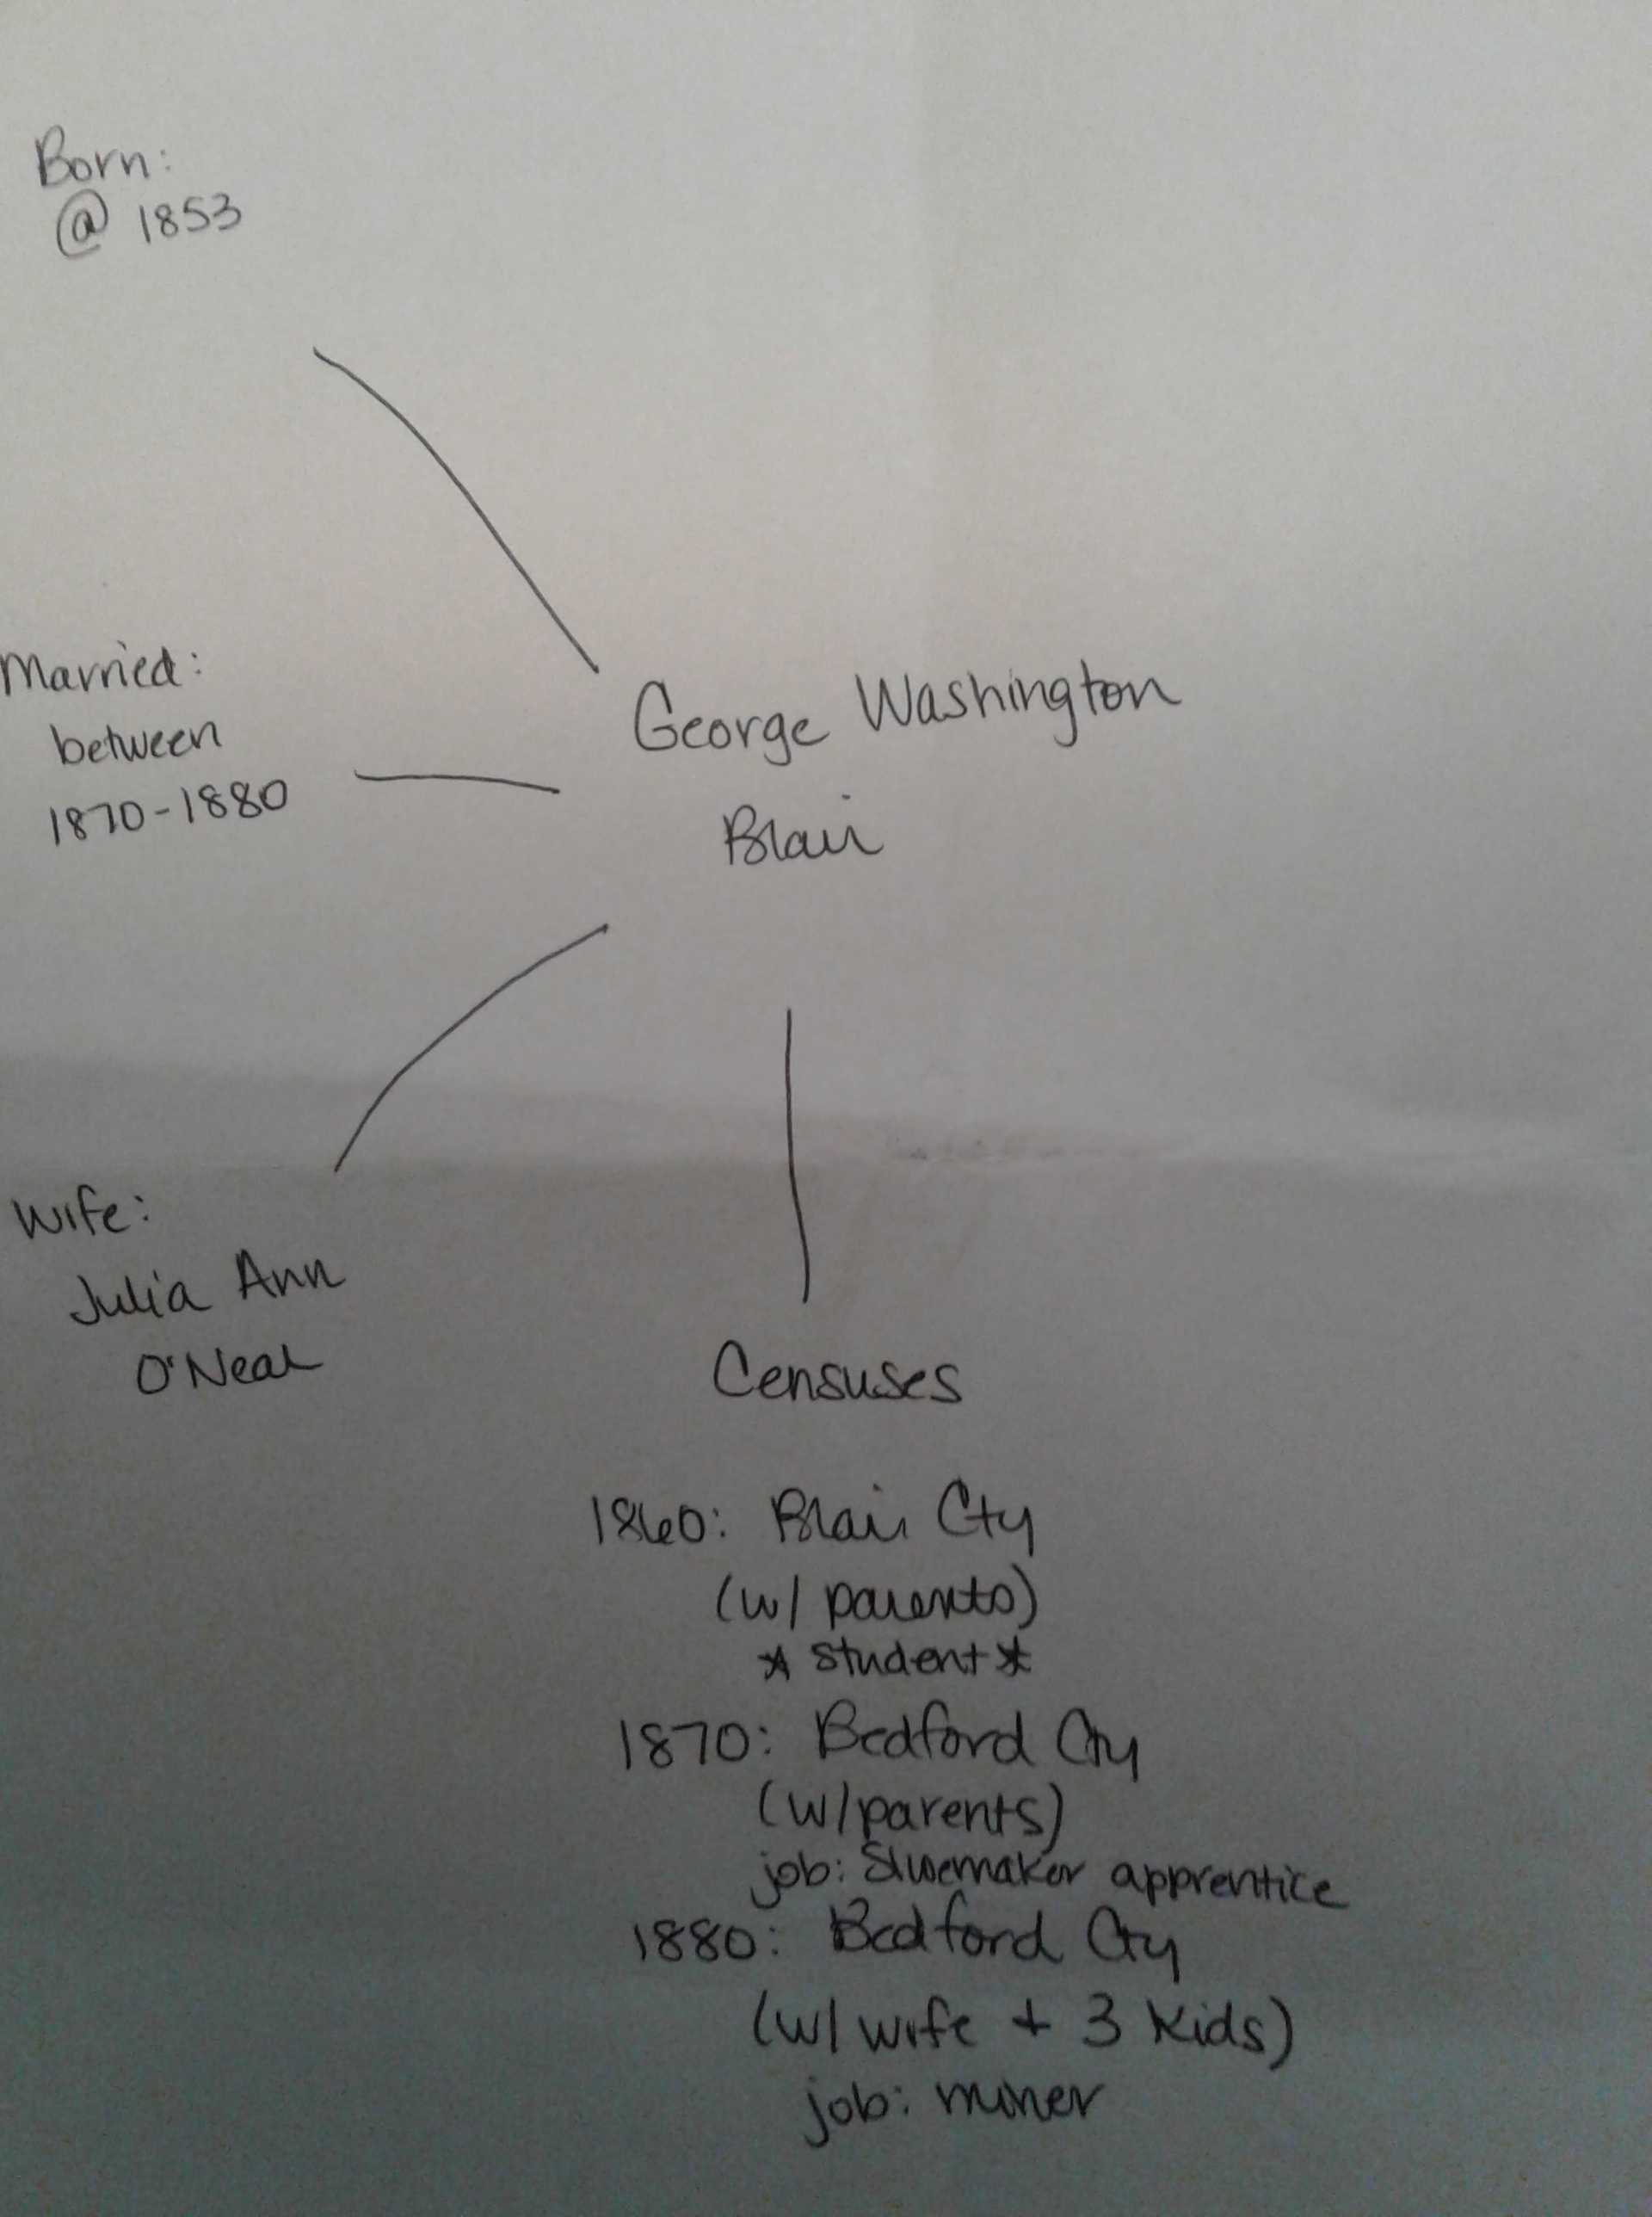 Born:
@ 1853
Married:
between
1870-1880
George Washington
Blair
Wife:
Julia Ann
O'Neal
Censuses
1860: Blair Cty
(w/ parents)
* student *
1870: Bedford Cty
(w/parents)
job: Shoemaker apprentice
1880: Bedford Cty
(w/ wife + 3 kids)
job: miner